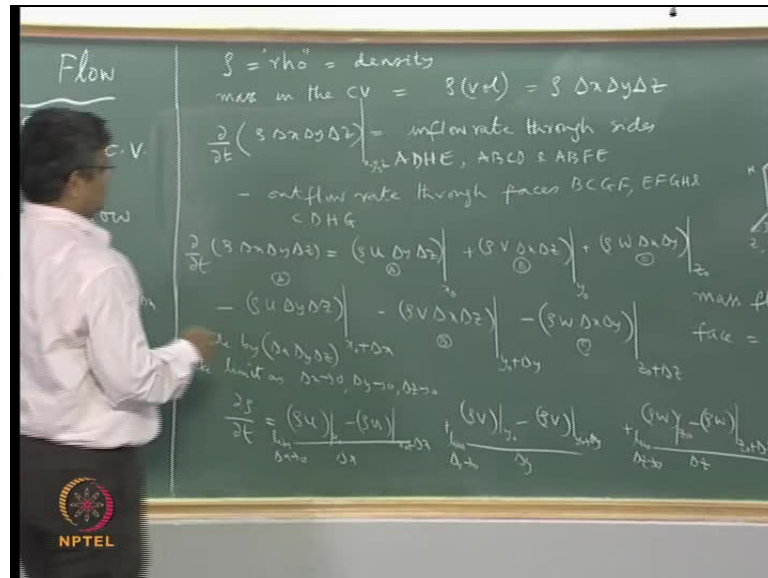 Flow
C.V.
ow
ρ = "rho" = density
mass in the CV = ρ(vol) = ρ Δx Δy Δz
∂/∂t (ρ Δx Δy Δz)| = inflow rate through sides
ADHE, ABCD & ABFE
- outflow rate through faces BCGF, EFGH &
CDHG
∂/∂t (ρ Δx Δy Δz) = (ρ u Δy Δz)|x₀ + (ρ v Δx Δz)|y₀ + (ρ w Δx Δy)|z₀
Ⓐ Ⓑ Ⓒ
- (ρ u Δy Δz)|x₀+Δx - (ρ v Δx Δz)|y₀+Δy - (ρ w Δx Δy)|z₀+Δz
Ⓐ Ⓑ Ⓒ
mass fl
face =
by (Δx Δy Δz)
limit as Δx→0, Δy→0, Δz→0
∂ρ/∂t = lim Δx→0 (ρu)|x₀ - (ρu)|x₀+Δx / Δx + lim Δy→0 (ρv)|y₀ - (ρv)|y₀+Δy / Δy + lim Δz→0 (ρw)|z₀ - (ρw)|z₀+Δz / Δz
NPTEL